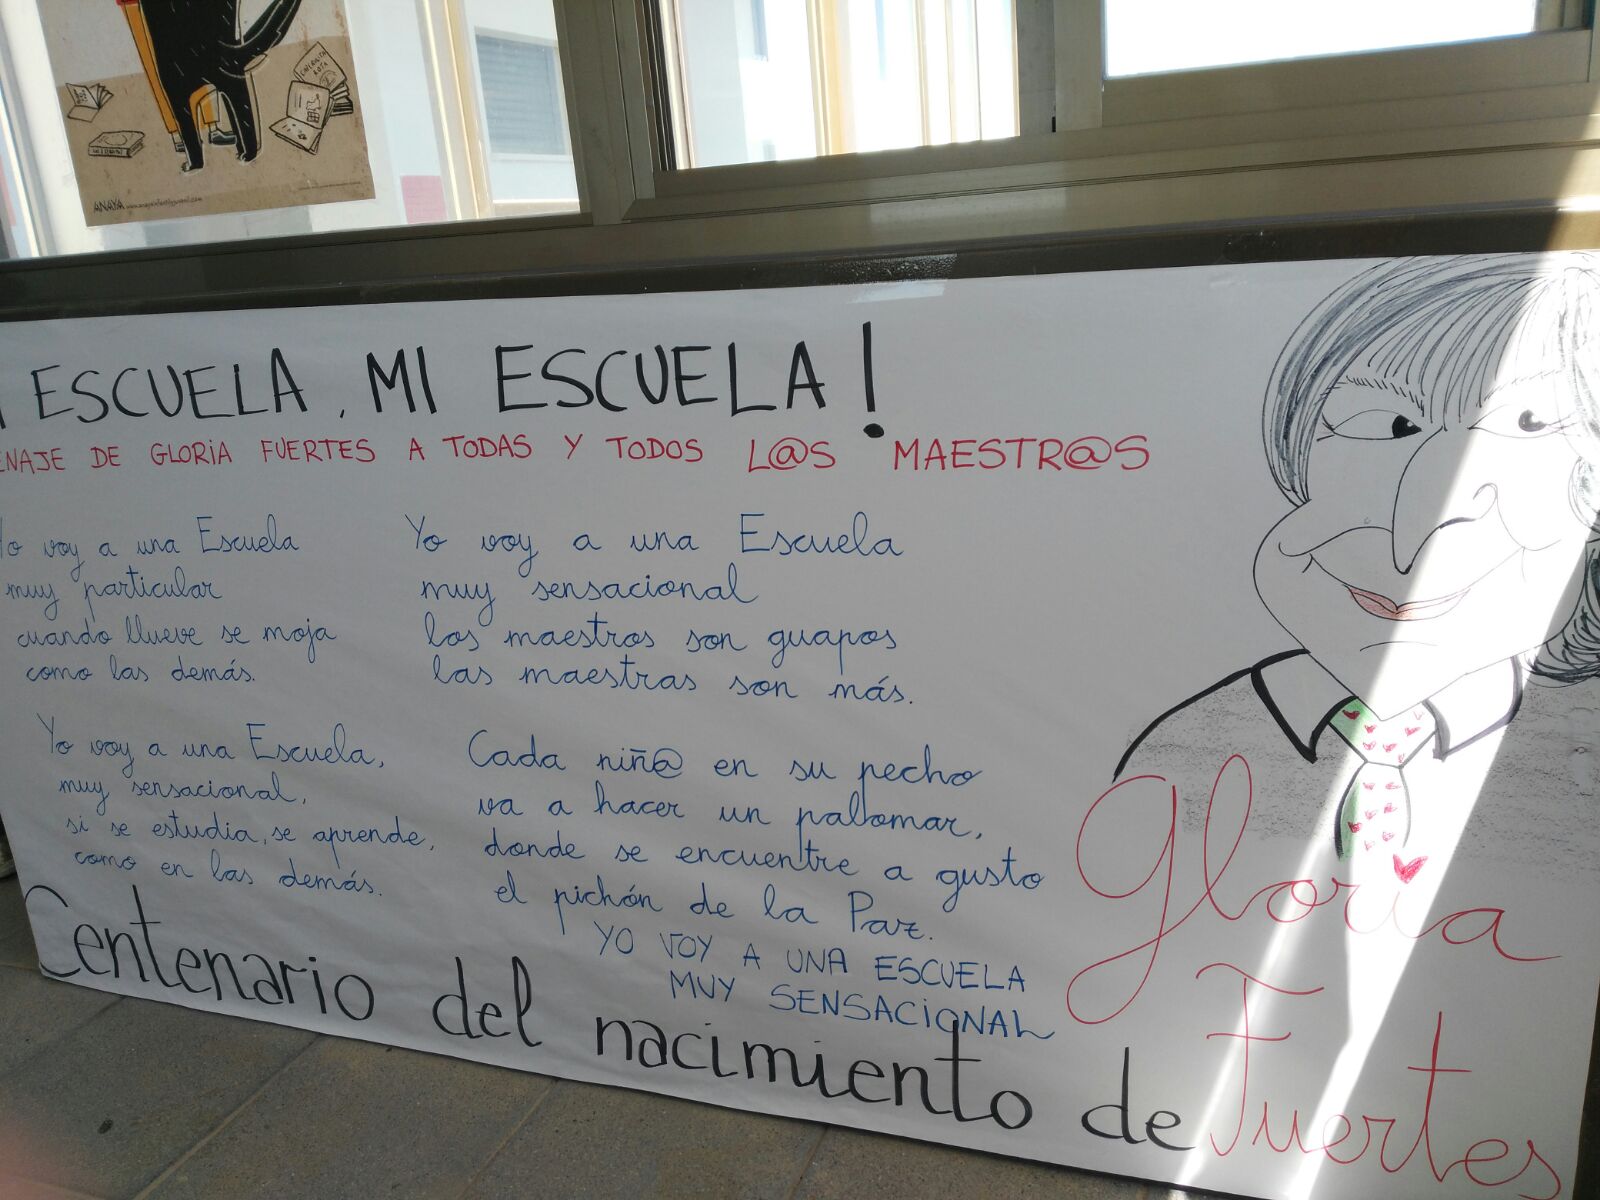 CONCIERTA
ROTA
ANAYA www.anayainfantilyjuvenil.com
¡ ESCUELA, MI ESCUELA!
ENAJE DE GLORIA FUERTES A TODAS Y TODOS L@S MAESTR@S
Yo voy a una Escuela
muy particular
cuando llueve se moja
como las demás.
Yo voy a una Escuela,
muy sensacional,
si se estudia, se aprende,
como en las demás.
Yo voy a una Escuela
muy sensacional
los maestros son guapos
las maestras son más.
Cada niñ@ en su pecho
va a hacer un palomar,
donde se encuentre a gusto
el pichón de la Paz.
YO VOY A UNA ESCUELA
MUY SENSACIONAL
Centenario del nacimiento de
Gloria
Fuertes